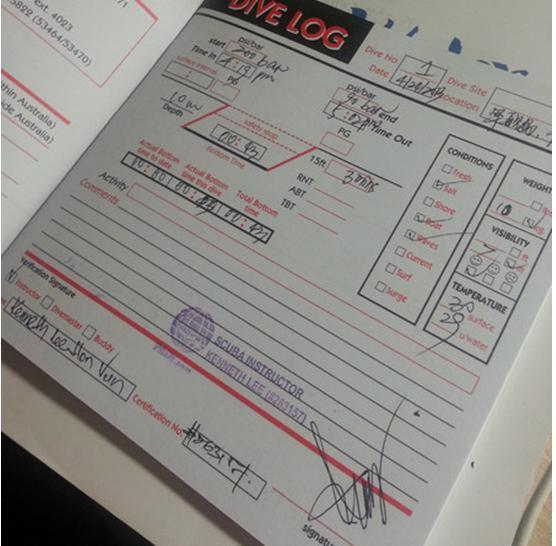 ext. 4023
5822 (53464/53470)
thin Australia)
ide Australia)
DIVE LOG
Dive No 1 Dive Site
Date 4/26/2013 Location
psi/bar
start 200 bar
Time in 4:19 pm
surface interval
PG
psi/bar
90 bar end
Time Out
PG
10m
Depth
safety stop
00:43
Bottom Time
15ft 3 mins
RNT
ABT
TBT
Actual Bottom time to date
Actual Bottom time this dive
Total Bottom time
Activity
Comments
CONDITIONS
Fresh
Salt
Shore
Boat
Waves
Current
Surf
Surge
WEIGHT
10 kg
VISIBILITY
7 ft
m
TEMPERATURE
surface
29 u/water
Verification Signature
Instructor Divemaster Buddy
Kenneth Lee
Certification No.
SCUBA INSTRUCTOR
KENNETH LEE (#263157)
signatu